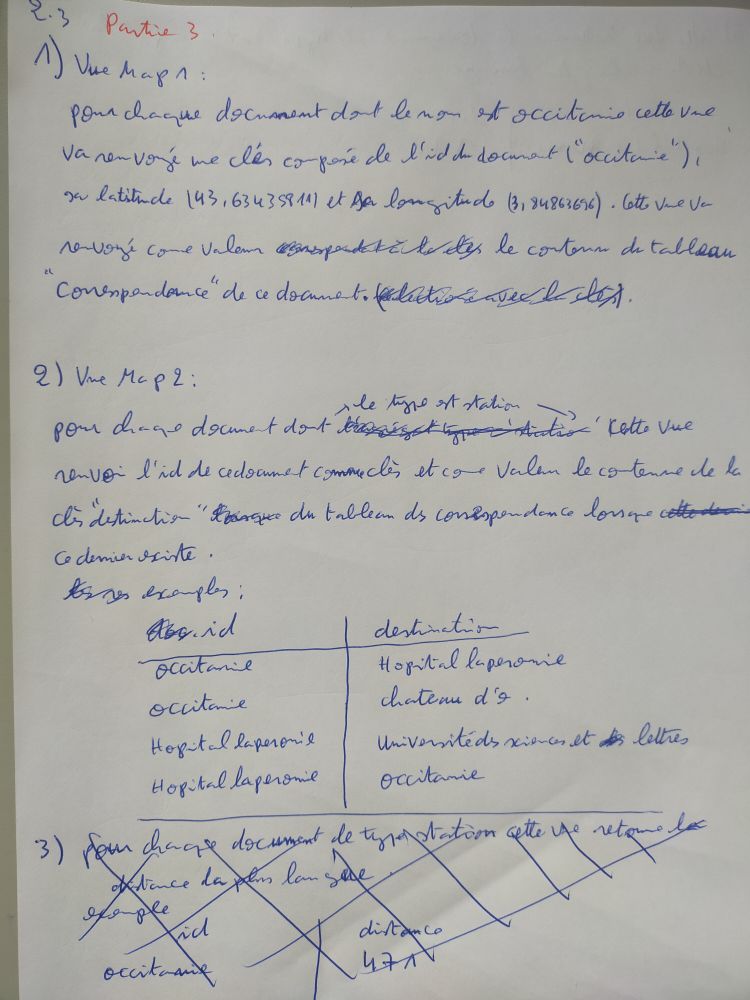 2.3 Partie 3.
1) Vue Map 1 :
pour chaque document dont le nom est occitanie cette vue
va renvoyé une clés composé de l'id du document ("occitanie"),
sa latitude (43,63435911) et sa longitude (3,84863696). Cette vue va
renvoyé come valeur le contenu du tableau
"Correspondance" de ce document.
2) Vue Map 2 :
le type est station
pour chaque document dont cette vue
renvoi l'id de ce document comme clès et come valeur le contenue de la
clès "destination" du tableau ds correspondance lorsque
ce dernier existe.
exemples :
id destination
occitanie Hopital laperonie
occitanie chateau d'o.
Hopital laperonie Université ds sciences et lettres
Hopital laperonie occitanie
3) pour chaque document de type station cette vue retourne la
distance la plus langue.
exemple
id distance
occitanie 471